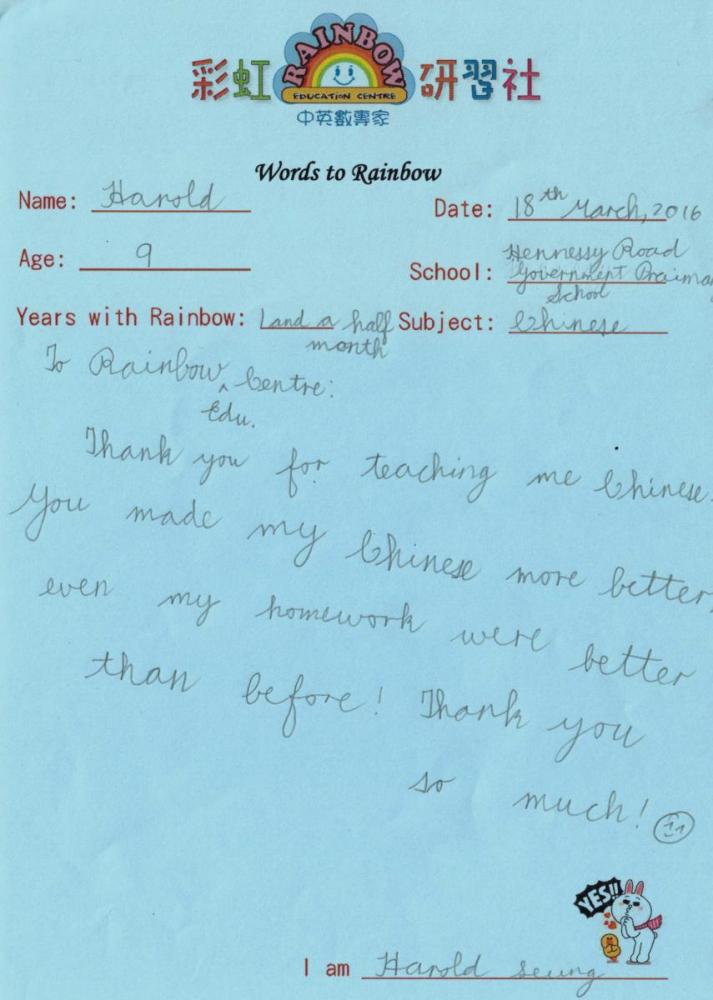 彩虹 RAINBOW 研習社
EDUCATION CENTRE
中英數專家
Words to Rainbow
Name: Harold
Date: 18th March, 2016
Age: 9
School: Hennessy Road
Government Praima
School
Years with Rainbow: 1 and a half
month
Subject: Chinese
To Rainbow ^ Centre:
Edu.
Thank you for teaching me Chinese.
You made my Chinese more better,
even my homework were better
than before! Thank you
so much!
YES!!
I am Harold seung